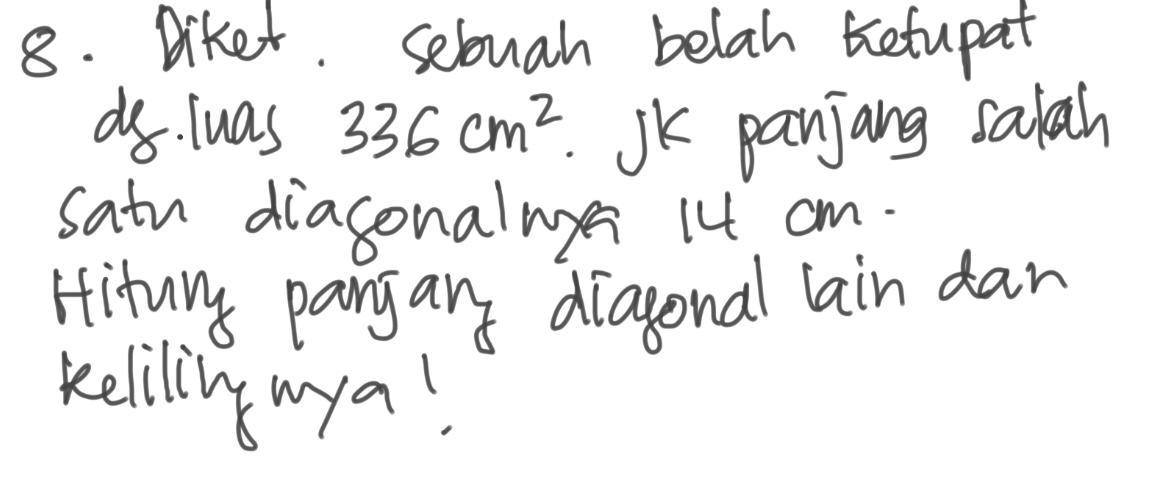 8. Diket. sebuah belah ketupat
dg. luas 336 cm². jk panjang salah
satu diagonalnya 14 cm.
Hitung panjang diagonal lain dan
kelilingnya!